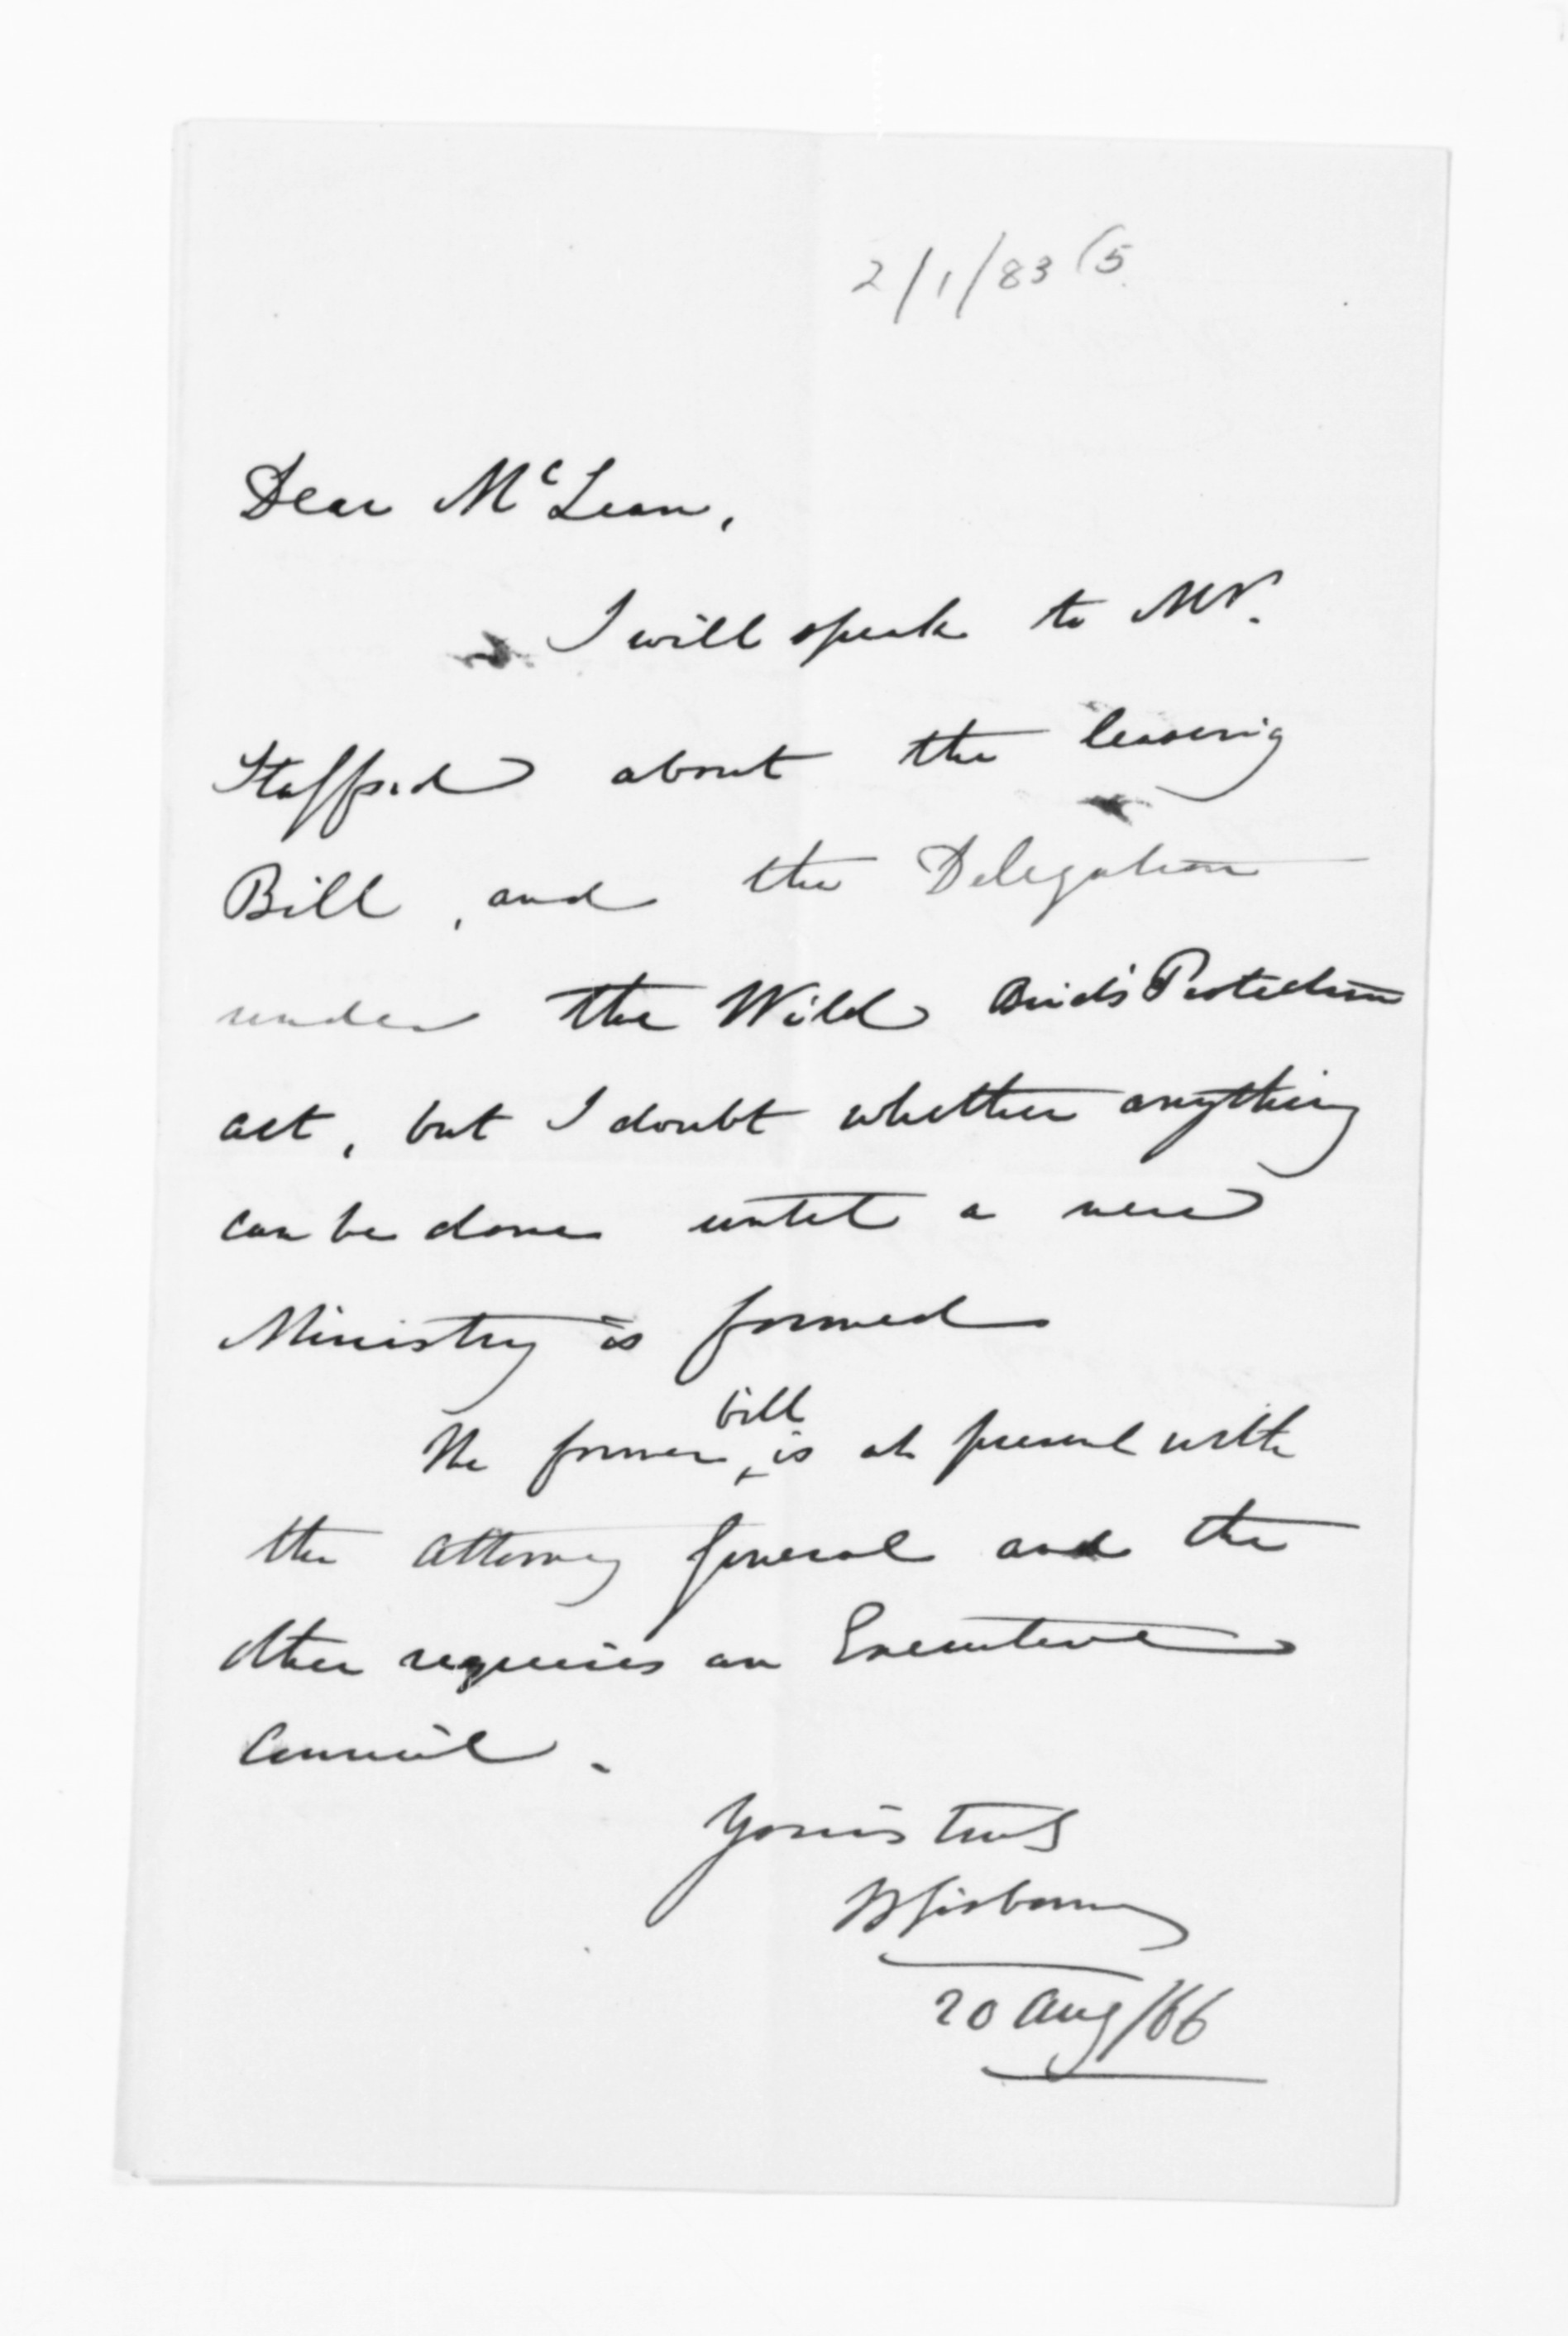 2/1/83 (5.
Dear McLean,
I will speak to Mr.
Stafford about the leasing
Bill, and the Delegation
under the Wild Birds' Protection
act, but I doubt whether anything
can be done until a new
Ministry is formed
bill
The former is at present with
the Attorney General and the
other requires an Executive
Council.
Yours truly
W Gisborne
20 Aug/66